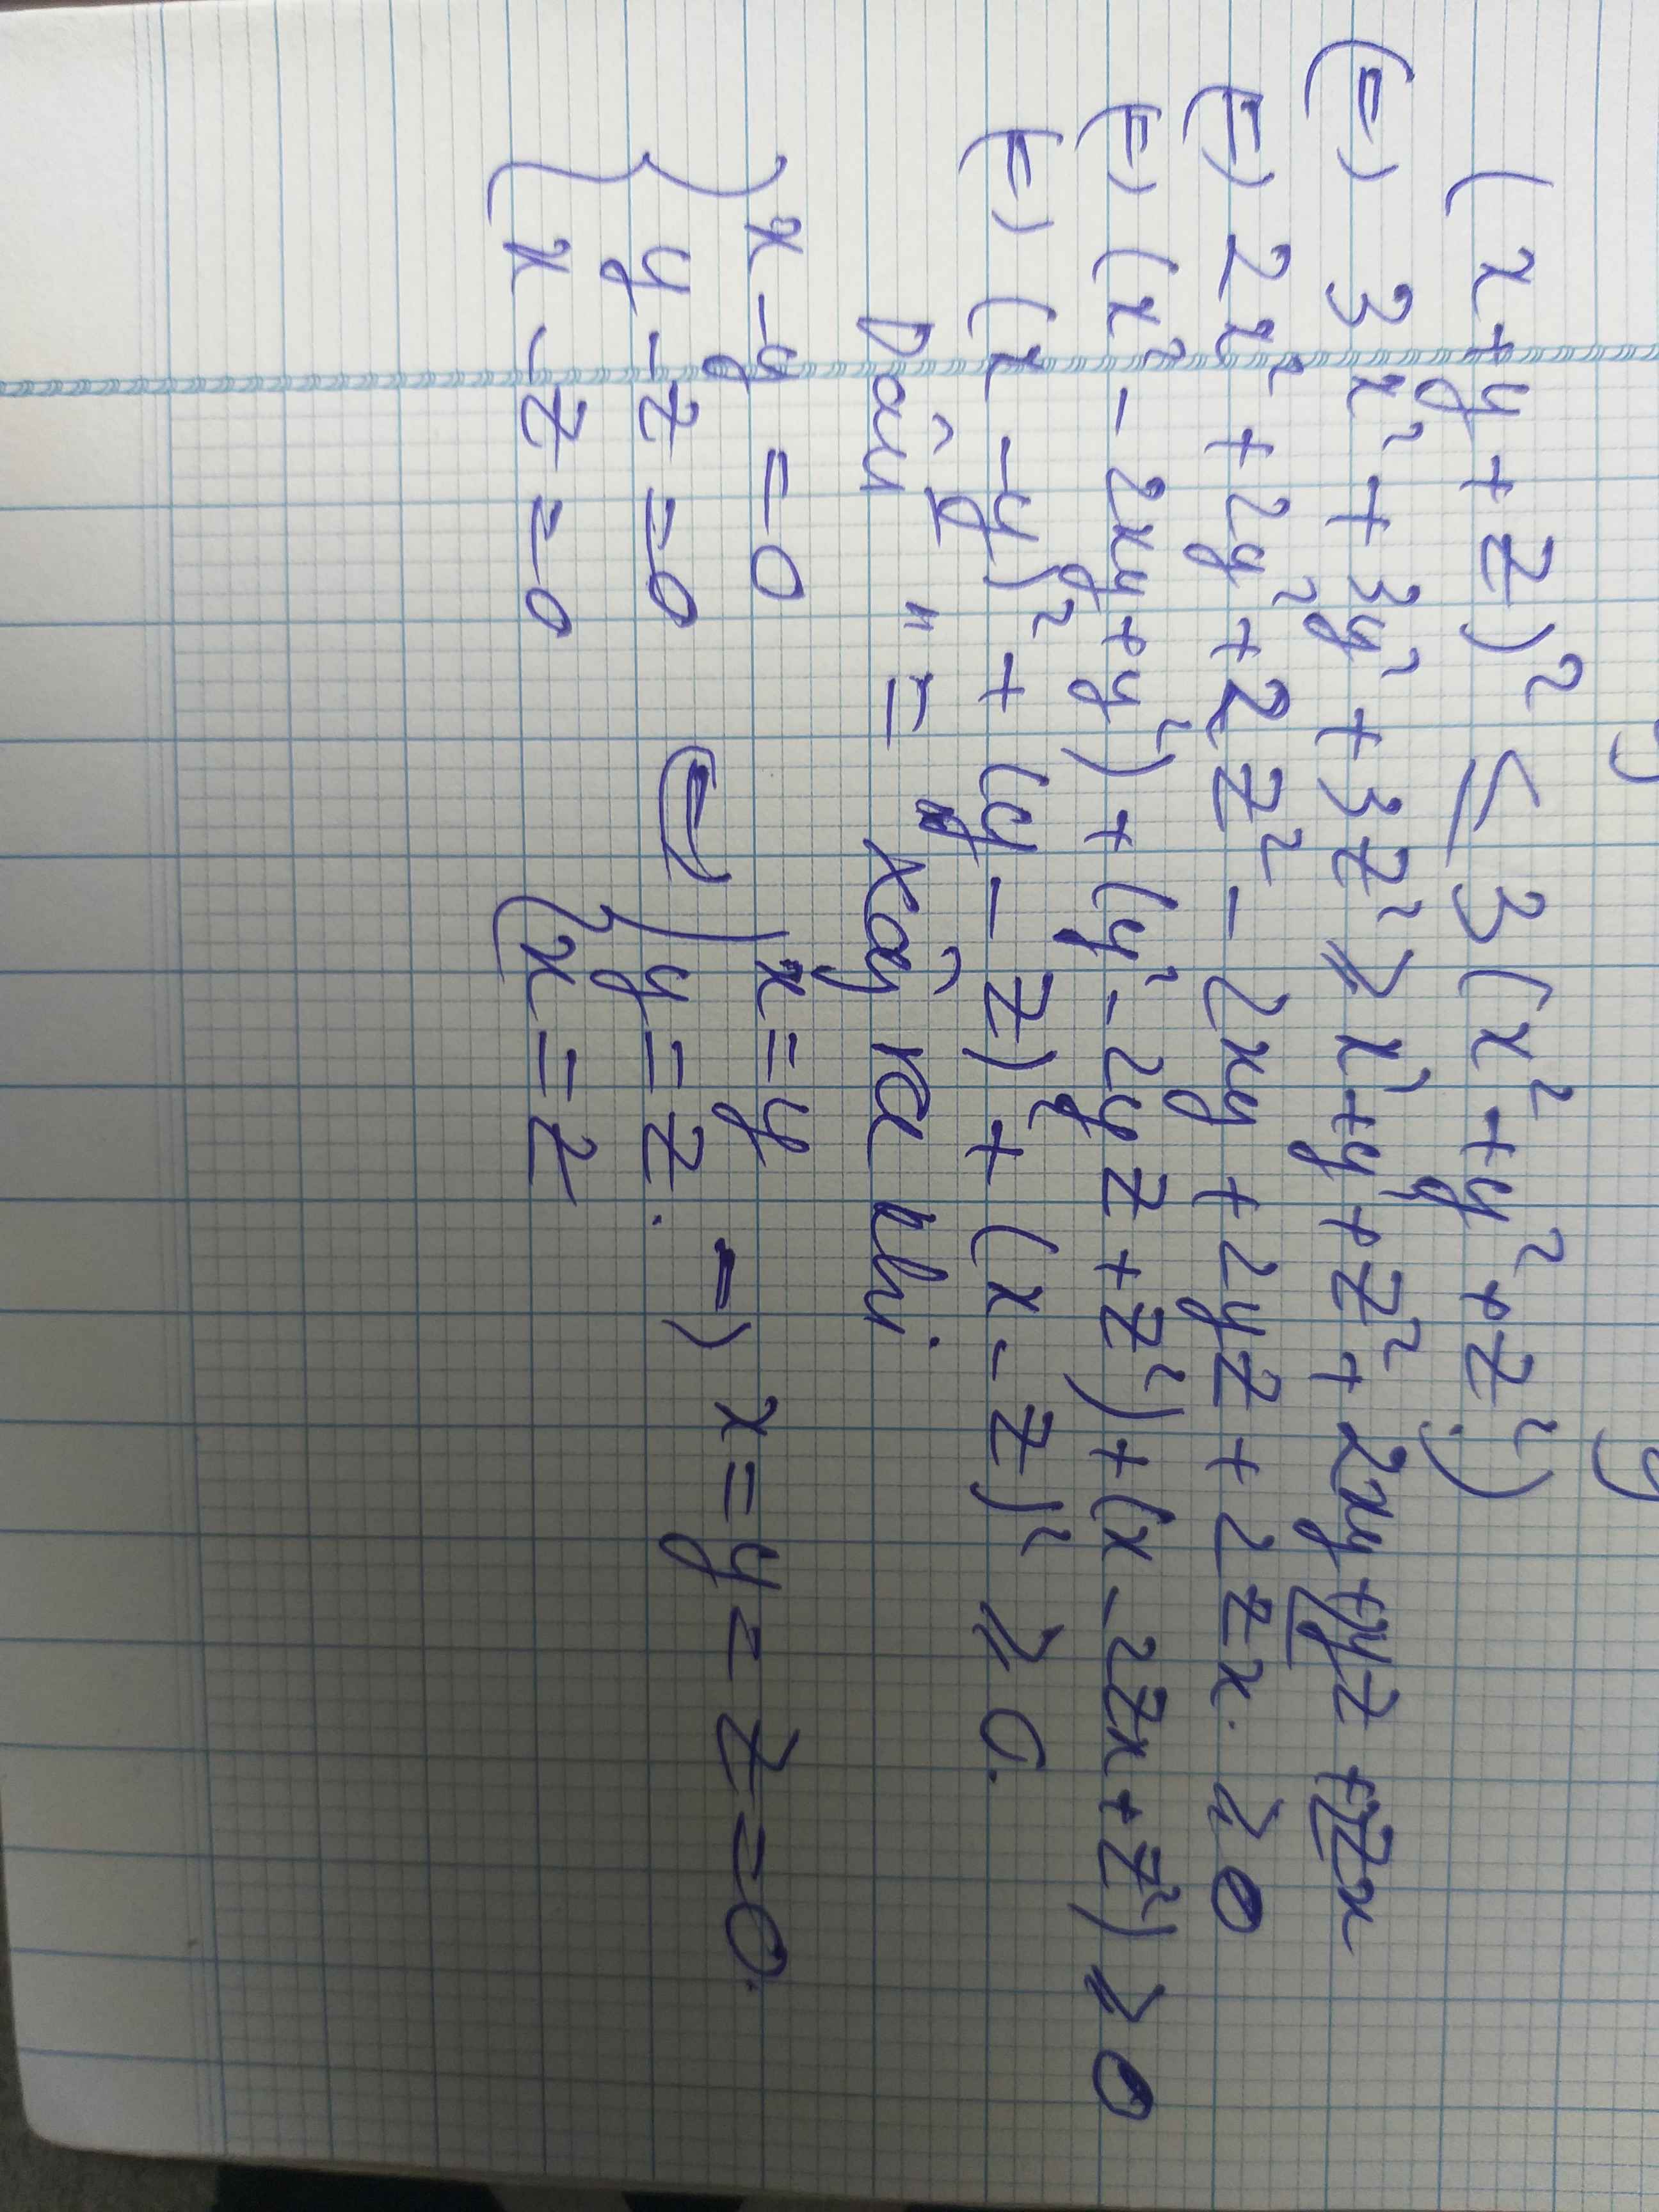 (x+y+z)² ≤ 3(x²+y²+z²)
(=) 3x²+3y²+3z² ≥ x²+y+z²+2xy+2yz+2zx
(=) 2x²+2y²+2z²-2xy+2yz+2zx. ≥0
(=) (x²-2xy+y²)+(y²-2yz+z²)+(x-2zx+z²) ≥0
(=) (x-y)²+(y-z)²+(x-z)² ≥0.
Dấu "=" xảy ra khi.
{x-y=0 {x=y
{y-z=0 (=) {y=z. -) x=y=z=0.
{x-z=0 {x=z